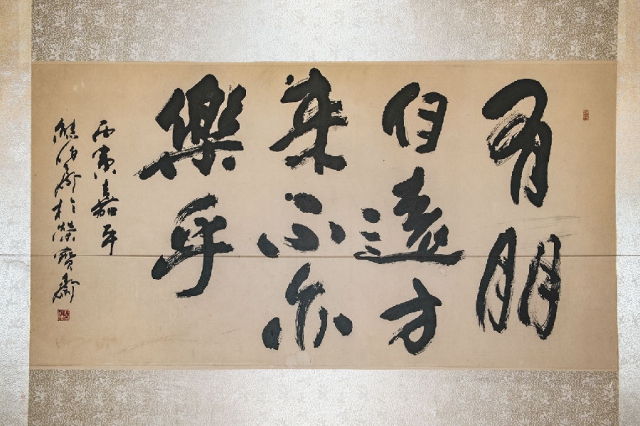 有朋
自遠方
来不亦
樂乎
丙寅嘉平
熊伯齊於榮寶齋